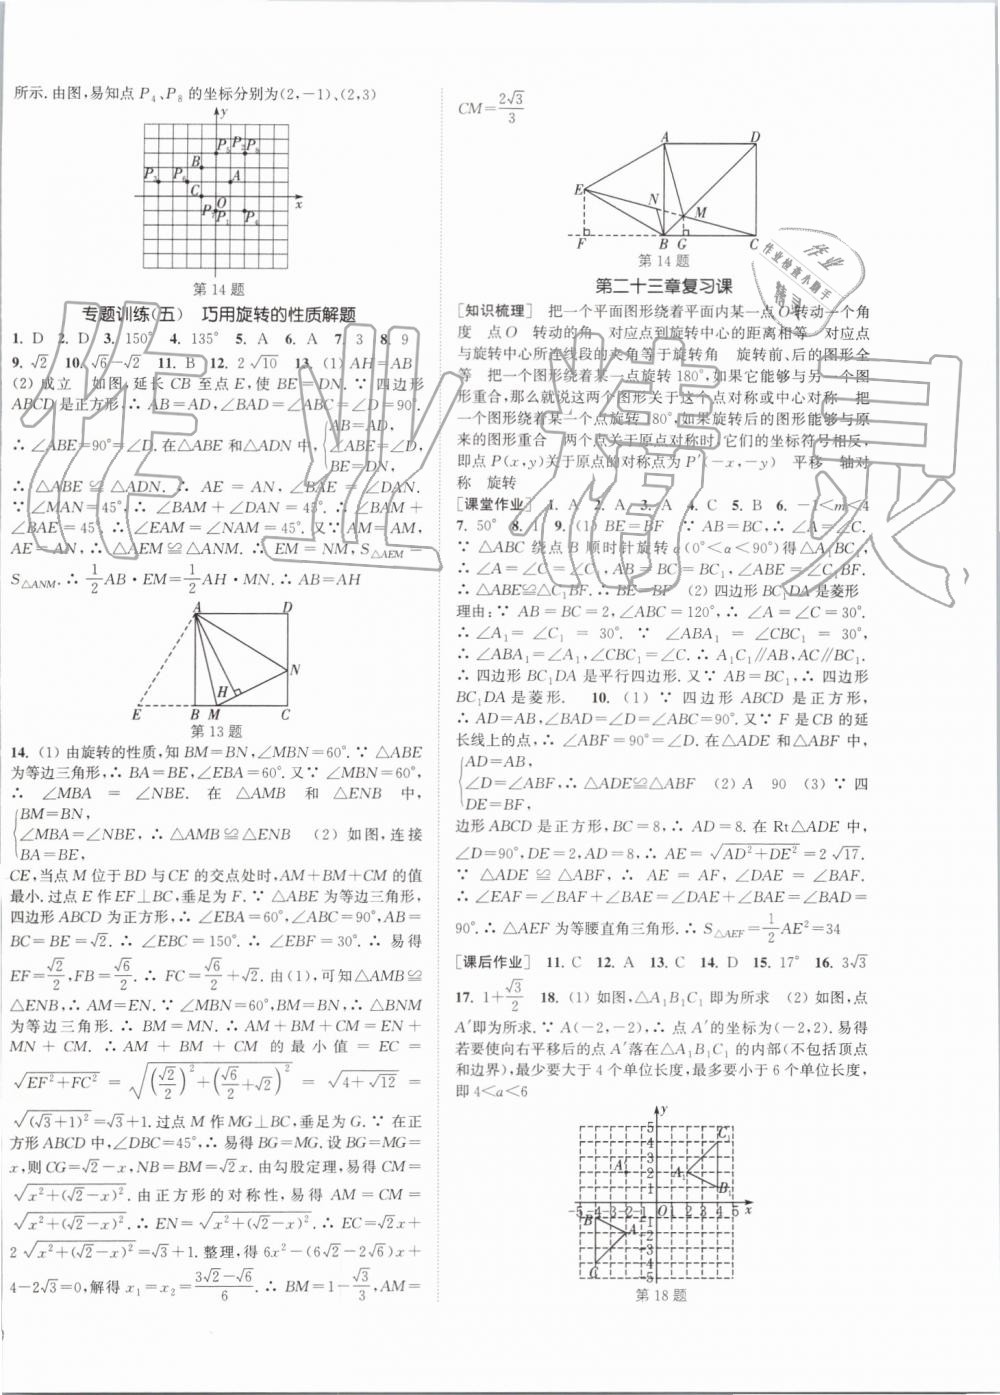 所示. 由图,易知点 P₄、P₈ 的坐标分别为(2,-1)、(2,3)
y
P₅ P₂ P₈
B
P₃ P₆ A
C
O x
P₇ P₁ P₄
第 14 题
专题训练(五) 巧用旋转的性质解题
1. D 2. D 3. 150° 4. 135° 5. A 6. A 7. 3 8. 9
9. √2 10. √6-√2 11. B 12. 2√10 13. (1) AH=AB
(2) 成立 如图,延长 CB 至点 E,使 BE=DN. ∵ 四边形
ABCD 是正方形,∴ AB=AD,∠BAD=∠ABC=∠D=90°.
∴ ∠ABE=90°=∠D. 在△ABE 和△ADN 中, {AB=AD, ∠ABE=∠D, BE=DN,
∴ △ABE≌△ADN. ∴ AE=AN, ∠BAE=∠DAN.
∵ ∠MAN=45°,∴ ∠BAM+∠DAN=45°. ∴ ∠BAM+
∠BAE=45°. ∴ ∠EAM=∠NAM=45°. 又∵ AM=AM,
AE=AN,∴ △AEM≌△ANM. ∴ EM=NM, S△AEM=
S△ANM. ∴ 1/2 AB·EM=1/2 AH·MN. ∴ AB=AH
A D
N
H
E B M C
第 13 题
14. (1) 由旋转的性质,知 BM=BN,∠MBN=60°. ∵ △ABE
为等边三角形,∴ BA=BE,∠EBA=60°. 又∵ ∠MBN=60°,
∴ ∠MBA=∠NBE. 在 △AMB 和 △ENB 中,
{BM=BN, ∠MBA=∠NBE, BA=BE, ∴ △AMB≌△ENB (2) 如图,连接
CE,当点 M 位于 BD 与 CE 的交点处时,AM+BM+CM 的值
最小. 过点 E 作 EF⊥BC,垂足为 F. ∵ △ABE 为等边三角形,
四边形 ABCD 为正方形,∴ ∠EBA=60°,∠ABC=90°,AB=
BC=BE=√2. ∴ ∠EBC=150°. ∴ ∠EBF=30°. ∴ 易得
EF=√2/2,FB=√6/2. ∴ FC=√6/2+√2. 由(1),可知△AMB≌
△ENB,∴ AM=EN. ∵ ∠MBN=60°,BM=BN,∴ △BNM
为等边三角形. ∴ BM=MN. ∴ AM+BM+CM=EN+
MN+CM. ∴ AM+BM+CM 的最小值=EC=
√(EF²+FC²)=√((√2/2)²+(√6/2+√2)²)=√(4+√12)=
√((√3+1)²)=√3+1. 过点 M 作 MG⊥BC,垂足为 G. ∵ 在正
方形 ABCD 中,∠DBC=45°,∴ 易得 BG=MG. 设 BG=MG=
x,则 CG=√2-x,NB=BM=√2x. 由勾股定理,易得 CM=
√(x²+(√2-x)²). 由正方形的对称性,易得 AM=CM=
√(x²+(√2-x)²). ∴ EN=√(x²+(√2-x)²). ∴ EC=√2x+
2√(x²+(√2-x)²)=√3+1. 整理,得 6x²-(6√2-2√6)x+
4-2√3=0,解得 x₁=x₂=(3√2-√6)/6. ∴ BM=1-√3/3,AM=
CM=2√3/3
A D
E
N M
F B G C
第 14 题
第二十三章复习课
[知识梳理] 把一个平面图形绕着平面内某一点 O 转动一个角
度 点 O 转动的角 对应点到旋转中心的距离相等 对应点
与旋转中心所连线段的夹角等于旋转角 旋转前、后的图形全
等 把一个图形绕着某一点旋转 180°,如果它能够与另一个图
形重合,那么就说这两个图形关于这个点对称或中心对称 把
一个图形绕着某一个点旋转 180°,如果旋转后的图形能够与原
来的图形重合 两个点关于原点对称时,它们的坐标符号相反,
即点 P(x,y)关于原点的对称点为 P′(-x,-y) 平移 轴对
称 旋转
[课堂作业] 1. A 2. A 3. A 4. C 5. B 6. -1<m<4
7. 50° 8. 1 9. (1) BE=BF ∵ AB=BC,∴ ∠A=∠C.
∵ △ABC 绕点 B 顺时针旋转 α(0°<α<90°)得△A₁BC₁,
∴ ∠A=∠C=∠C₁, AB=BC=BC₁,∠ABE=∠C₁BF.
∴ △ABE≌△C₁BF. ∴ BE=BF (2) 四边形 BC₁DA 是菱形
理由:∵ AB=BC=2,∠ABC=120°,∴ ∠A=∠C=30°.
∴ ∠A₁=∠C₁=30°. ∵ ∠ABA₁=∠CBC₁=30°,
∴ ∠ABA₁=∠A₁,∠CBC₁=∠C. ∴ A₁C₁∥AB,AC∥BC₁.
∴ 四边形 BC₁DA 是平行四边形. 又∵ AB=BC₁,∴ 四边形
BC₁DA 是菱形. 10. (1) ∵ 四边形 ABCD 是正方形,
∴ AD=AB,∠BAD=∠D=∠ABC=90°. 又∵ F 是 CB 的延
长线上的点,∴ ∠ABF=90°=∠D. 在△ADE 和△ABF 中,
{AD=AB, ∠D=∠ABF, DE=BF, ∴ △ADE≌△ABF (2) A 90 (3) ∵ 四
边形 ABCD 是正方形,BC=8,∴ AD=8. 在 Rt△ADE 中,
∠D=90°,DE=2,AD=8,∴ AE=√(AD²+DE²)=2√17.
∵ △ADE≌△ABF, ∴ AE=AF, ∠DAE=∠BAF.
∴ ∠EAF=∠BAF+∠BAE=∠DAE+∠BAE=∠BAD=
90°. ∴ △AEF 为等腰直角三角形. ∴ S△AEF=1/2 AE²=34
[课后作业] 11. C 12. A 13. C 14. D 15. 17° 16. 3√3
17. 1+√3/2 18. (1) 如图,△A₁B₁C₁ 即为所求 (2) 如图,点
A′即为所求. ∵ A(-2,-2),∴ 点 A′的坐标为(-2,2). 易得
若要使向右平移后的点 A′落在△A₁B₁C₁ 的内部(不包括顶点
和边界),最少要大于 4 个单位长度,最多要小于 6 个单位长度,
即 4<a<6
y
5
4 C₁
3
A′ 2 A₁
1 B₁
-5 -4 -3 -2 -1 O 1 2 3 4 5 x
B -1
-2 A
-3
C -4
-5
第 18 题
作业
作业检查小助手
精灵
作业精灵